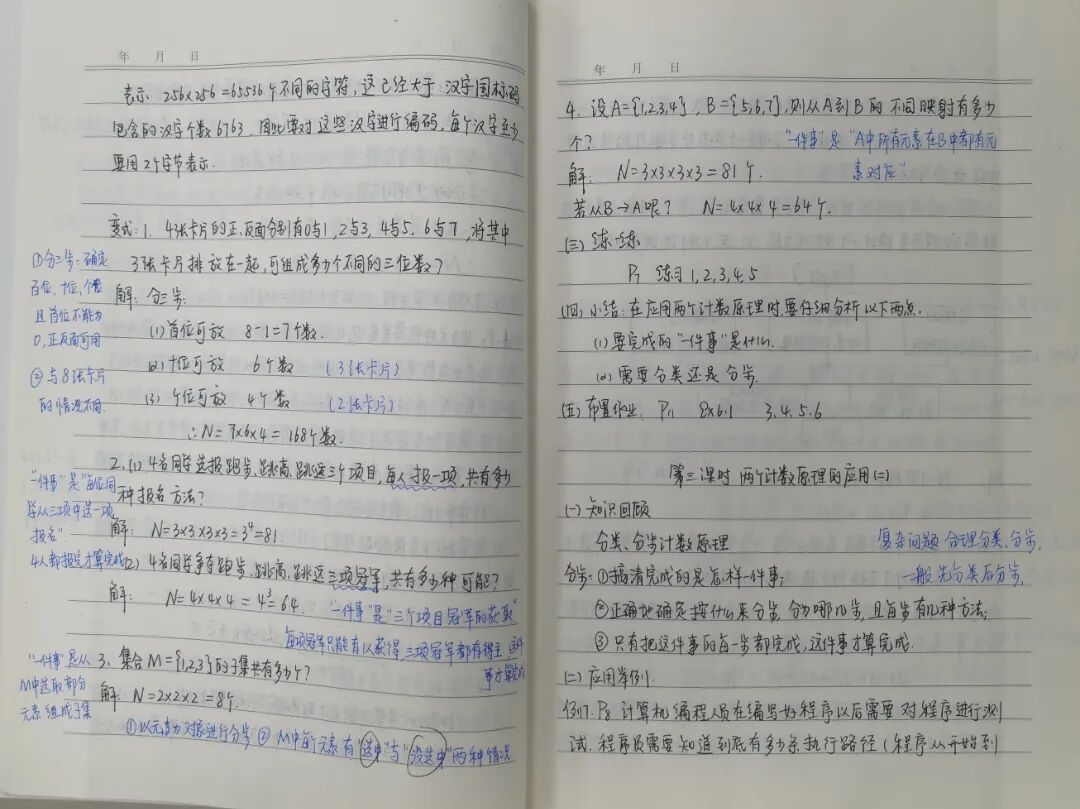 年 月 日
表示 256×256=65536个不同的字符，这已经大于汉字国标码
包含的汉字个数6763，因此要对这些汉字进行编码，每个汉字至少
要用2个字节表示.
变式：1. 4张卡片的正、反面分别有0与1，2与3，4与5，6与7，将其中
3张卡片排放在一起，可组成多少个不同的三位数？
①分三步：确定
百位、十位、个位
且首位不能为
0，正反面可用
②与8张卡片
的情况不同.
解：分三步：
(1)首位可放 8-1=7个数.
(2)十位可放 6个数 (3张卡片)
(3) 个位可放 4个数 (2张卡片)
∴N=7×6×4=168个数.
2.(1) 4名同学选报跑步、跳高、跳远三个项目，每人报一项，共有多少
种报名方法？
"一件事"是"每位同
学从三项中选一项
报名".
4人都报完才算完成
解：N=3×3×3×3=3⁴=81.
(2) 4名同学争夺跑步、跳高、跳远三项冠军，共有多少种可能？
解：N=4×4×4=4³=64.
"一件事"是"三个项目冠军的获取"
每项冠军只能有1人获得，三项冠军都有得主，这件
事才算完成
3. 集合M={1,2,3}的子集共有多少个？
"一件事"是从
M中选取部分
元素组成子集
解：N=2×2×2=8个.
①以元素为对象进行分步 ②M中每个元素有"选中"与"没选中"两种情况
年 月 日
4. 设A={1,2,3,4}，B={5,6,7}，则从A到B的不同映射有多少
个？ "一件事"是"A中所有元素在B中都有元
素对应"
解： N=3×3×3×3=81个.
若从B→A呢？ N=4×4×4=64个.
(三) 练一练
P₇ 练习1,2,3,4,5
(四) 小结：在应用两个计数原理时，要仔细分析以下两点.
(1)要完成的"一件事"是什么.
(2)需要分类还是分步.
(五) 布置作业. P₁₁ 8×6.1 3、4、5、6
第三课时 两个计数原理的应用(二)
(一) 知识回顾
分类、分步计数原理 复杂问题 合理分类、分步，
分步：①搞清完成的是怎样一件事； 一般先分类后分步，
②正确地确定按什么来分步，分为哪几步，且每步有几种方法；
③只有把这件事的每一步都完成，这件事才算完成.
(二) 应用举例.
例7. P₈ 计算机编程人员在编写好程序以后需要对程序进行测
试.程序员需要知道到底有多少条执行路径(程序从开始到